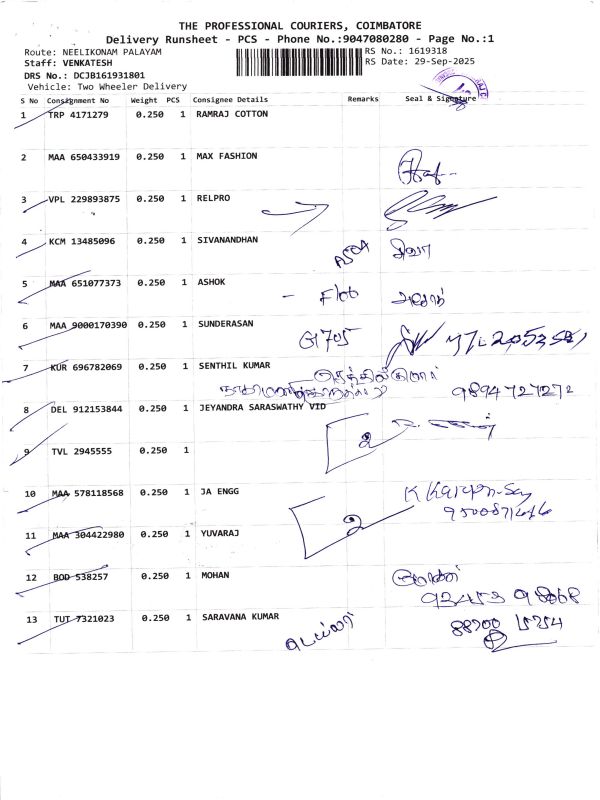 THE PROFESSIONAL COURIERS, COIMBATORE
Delivery Runsheet - PCS - Phone No.:9047080280 - Page No.:1
Route: NEELIKONAM PALAYAM RS No.: 1619318
Staff: VENKATESH RS Date: 29-Sep-2025
DRS No.: DCJB161931801
Vehicle: Two Wheeler Delivery
S No Consignment No Weight PCS Consignee Details Remarks Seal & Signature
1 TRP 4171279 0.250 1 RAMRAJ COTTON
2 MAA 650433919 0.250 1 MAX FASHION
3 VPL 229893875 0.250 1 RELPRO
4 KCM 13485096 0.250 1 SIVANANDHAN சிவா
5 MAA 651077373 0.250 1 ASHOK - F106 அசோக்
6 MAA 9000170390 0.250 1 SUNDERASAN G1705
7 KUR 696782069 0.250 1 SENTHIL KUMAR செந்தில்குமார்
9894727272
8 DEL 912153844 0.250 1 JEYANDRA SARASWATHY VID
2
9 TVL 2945555 0.250 1
10 MAA 578118568 0.250 1 JA ENGG
2
11 MAA 304422980 0.250 1 YUVARAJ
12 BOD 538257 0.250 1 MOHAN மோகன்
93453 98868
13 TUT 7321023 0.250 1 SARAVANA KUMAR டெய்லர் 88700 15754